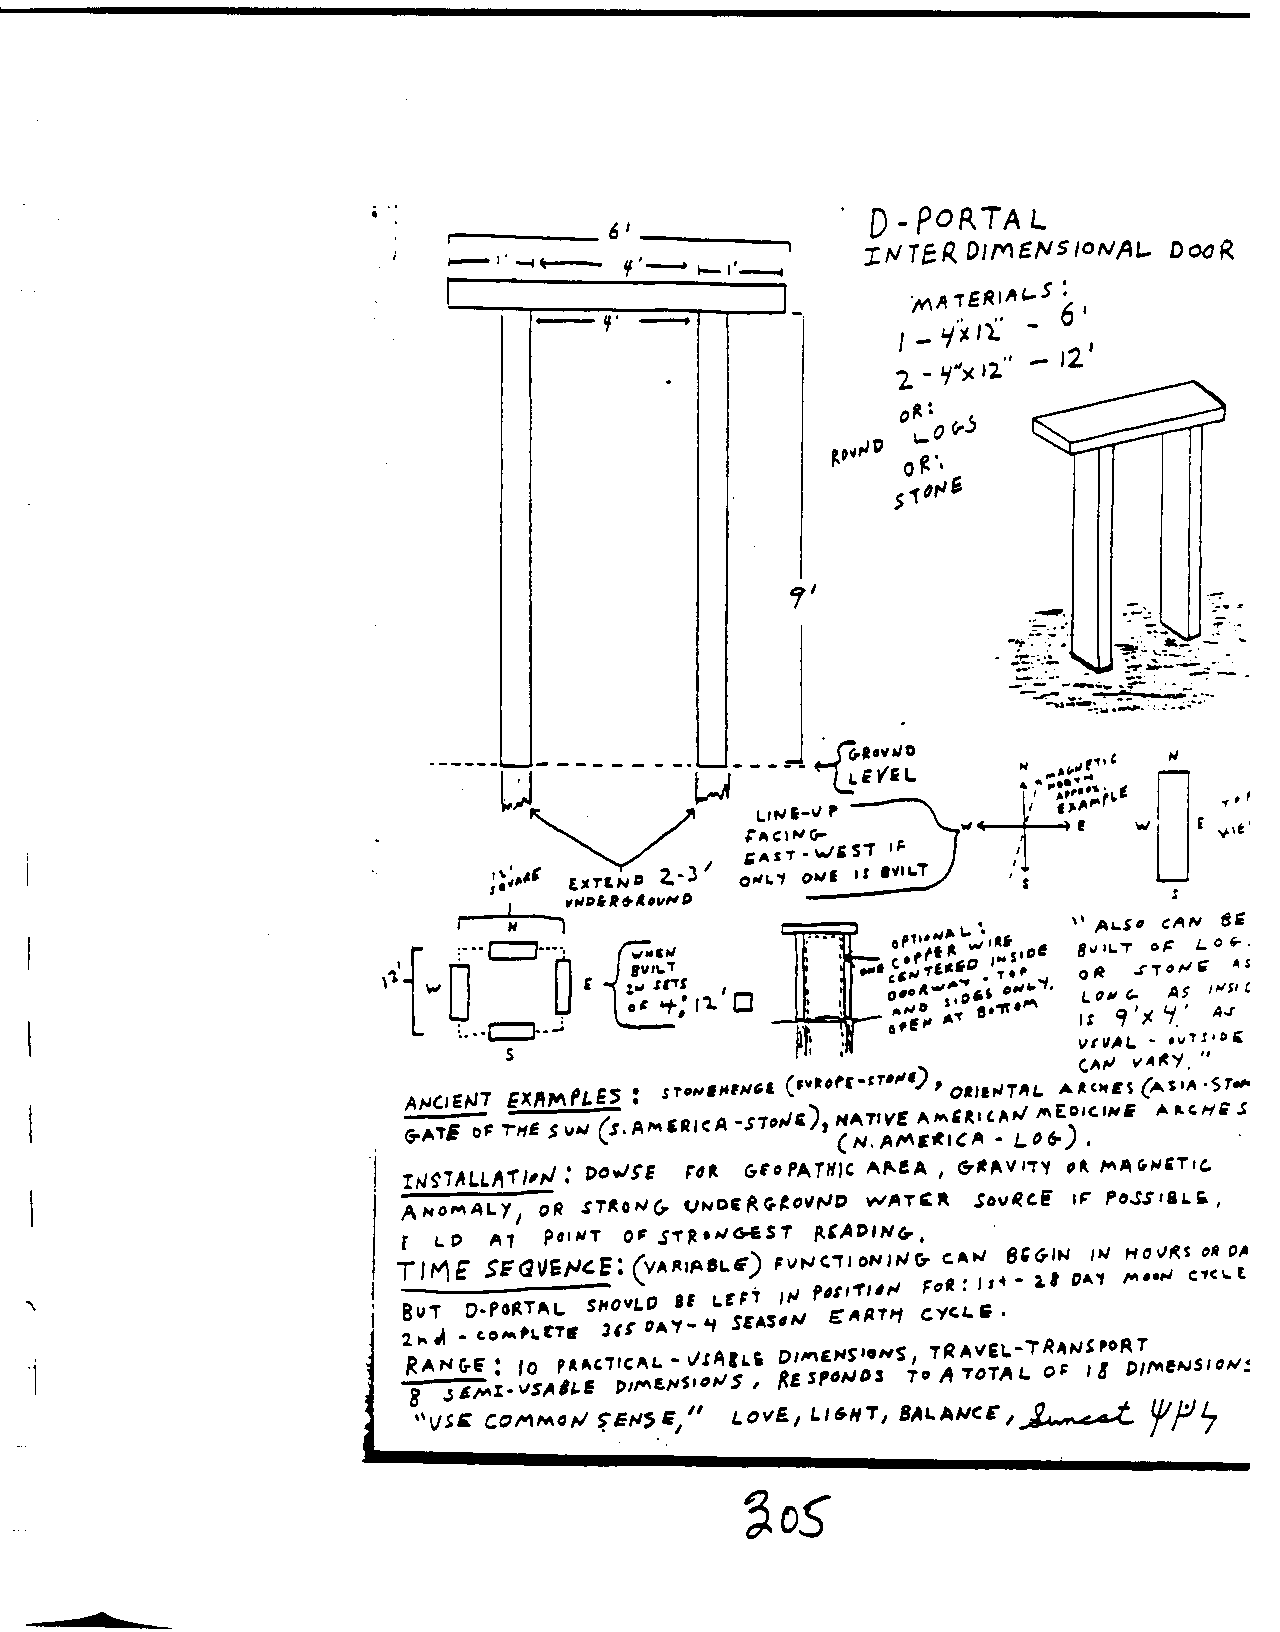 D-PORTAL
INTERDIMENSIONAL DOOR
MATERIALS:
1 - 4"x12" - 6'
2 - 4"x12" - 12'
OR:
ROUND LOGS
OR:
STONE
6'
1' 4' 1'
4'
9'
GROUND
LEVEL
LINE-UP
FACING
EAST-WEST IF
ONLY ONE IS BUILT
N
W E
S
MAGNETIC
NORTH
APPROX.
EXAMPLE
N
W E
S
TOP
VIE
EXTEND 2-3'
UNDERGROUND
12'
SQUARE
12'
N
W E
S
WHEN
BUILT
IN SETS
OF 4; 12' □
OPTIONAL:
ONE COPPER WIRE
CENTERED INSIDE
DOORWAY - TOP
AND SIDES ONLY.
OPEN AT BOTTOM
"ALSO CAN BE
BUILT OF LOG
OR STONE AS
LONG AS INSI
IS 9'X4' AS
USUAL - OUTSIDE
CAN VARY."
ANCIENT EXAMPLES: STONEHENGE (EUROPE-STONE), ORIENTAL ARCHES (ASIA-STON
GATE OF THE SUN (S. AMERICA-STONE), NATIVE AMERICAN MEDICINE ARCHES
(N. AMERICA - LOG).
INSTALLATION: DOWSE FOR GEOPATHIC AREA, GRAVITY OR MAGNETIC
ANOMALY, OR STRONG UNDERGROUND WATER SOURCE IF POSSIBLE,
LD AT POINT OF STRONGEST READING.
TIME SEQUENCE: (VARIABLE) FUNCTIONING CAN BEGIN IN HOURS OR DA
BUT D-PORTAL SHOULD BE LEFT IN POSITION FOR: 1st - 28 DAY MOON CYCLE
2nd - COMPLETE 365 DAY - 4 SEASON EARTH CYCLE.
RANGE: 10 PRACTICAL-USABLE DIMENSIONS, TRAVEL-TRANSPORT
8 SEMI-USABLE DIMENSIONS, RESPONDS TO A TOTAL OF 18 DIMENSIONS
"USE COMMON SENSE," LOVE, LIGHT, BALANCE,
305